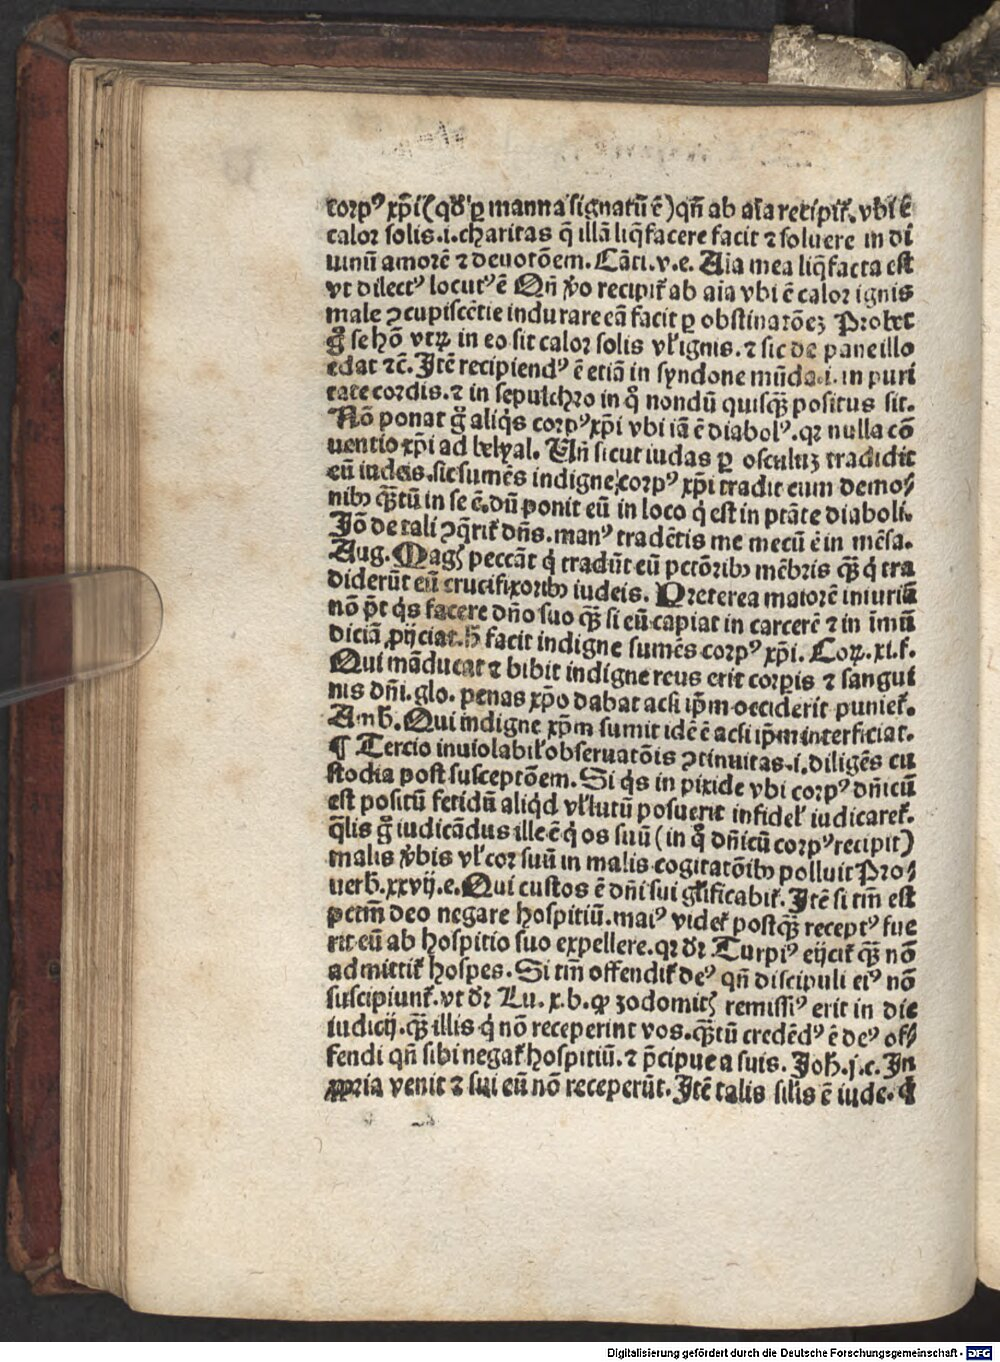 corpꝰ xp̄i (qd̄ ꝑ manna signatū ē) qn̄ ab aīa recipit᷑. vbi ē
calor solis .i. charitas q̄ illā liq̄facere facit ⁊ soluere in di
uinū amorē ⁊ deuotōem. Cāti .v. e. Aīa mea liq̄facta est
vt dilectꝰ locutꝰ ē Qn̄ v̄o recipit᷑ ab aīa vbi ē calor ignis
male ꝯcupiscētie indurare eā facit ꝑ obstinatōeꝫ Probet
gͦ se hō vtꝝ in eo sit calor solis vl̓ ignis. ⁊ sic de pane illo
edat ⁊c̄. Jtē recipiendꝰ ē etiā in syndone mūda .i. in puri
tate cordis. ⁊ in sepulchro in qͦ nondū quisqꝫ̄ positus sit.
Nō ponat gͦ aliqͥs corpꝰ xp̄i vbi iā ē diabolꝰ. qꝛ nulla cō
uentio xp̄i ad belyal. Un̄ sicut iudas ꝑ osculuꝫ tradidit
eū iudeis. sic sumēs indigne corpꝰ xp̄i tradit eum demo⸗
nibꝰ qꝫ̄tū in se ē. dū ponit eū in loco qͥ est in ptāte diaboli.
Jō de tali ꝯq̄rit᷑ dn̄s. manꝰ tradētis me mecū ē in mēsa.
Aug. Magꝭ peccāt qͥ tradūt eū pctōribꝰ mēbris qꝫ̄ qͥ tra
diderūt eū crucifixoribꝰ iudeis. Preterea maiorē iniuriā
nō pt̄ qͥs facere dn̄o suo qꝫ̄ si eū capiat in carcerē ⁊ in īmū
diciā ꝓijciat. h̄ facit indigne sumēs corpꝰ xp̄i. Coꝝ. xi. f.
Qui māducat ⁊ bibit indigne reus erit corꝑis ⁊ sangui
nis dn̄i. glo. penas xp̄o dabat acsi ip̄m occiderit puniet᷑.
Amb̄. Qui indigne xp̄m sumit idē ē acsi ip̄m interficiat.
¶ Tercio inuiolabil̓ obseruatōis ꝯtinuitas .i. diligēs cu
stodia post susceptōem. Si qͥs in pixide vbi corpꝰ dn̄icū
est positū fetidū aliqͥd vl̓ lutū posuerit infidel̓ iudicaret᷑.
q̄lis gͦ iudicādus ille ē qͥ os suū (in qͦ dn̄icū corpꝰ recipit)
malis v̄bis vl̓ cor suū in malis cogitatōibꝰ polluit Pro⸗
uerb̄. xxvij. e. Qui custos ē dn̄i sui gl̓ificabit᷑. Jtē si tm̄ est
petm̄ deo negare hospitiū. maiꝰ videt᷑ postqꝫ̄ receptꝰ fue
rit eū ab hospitio suo expellere. qꝛ dr̄ Turpiꝰ eijcit᷑ qꝫ̄ nō
admittit᷑ hospes. Si tm̄ offendit᷑ deꝰ qn̄ discipuli eiꝰ nō
suscipiunt᷑. vt dr̄ Lu. x. b. ꝙ zodomitꝭ remissiꝰ erit in die
iudicij. qꝫ̄ illis qͥ nō receperint vos. qꝫ̄tū credēdꝰ ē deꝰ of⸗
fendi qn̄ sibi negat᷑ hospitiū. ⁊ p̄cipue a suis. Joh̄. j. c. Jn
ꝓpria venit ⁊ sui eū nō receperūt. Jtē talis sil̓is ē iude. qͥ
Digitalisierung gefördert durch die Deutsche Forschungsgemeinschaft - DFG